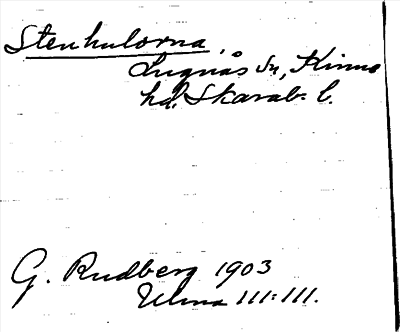 Stenhulorna,
Lugnås sn, Kinne
hd, Skarab. l.
G. Rudberg 1903
Ulma 111:111.